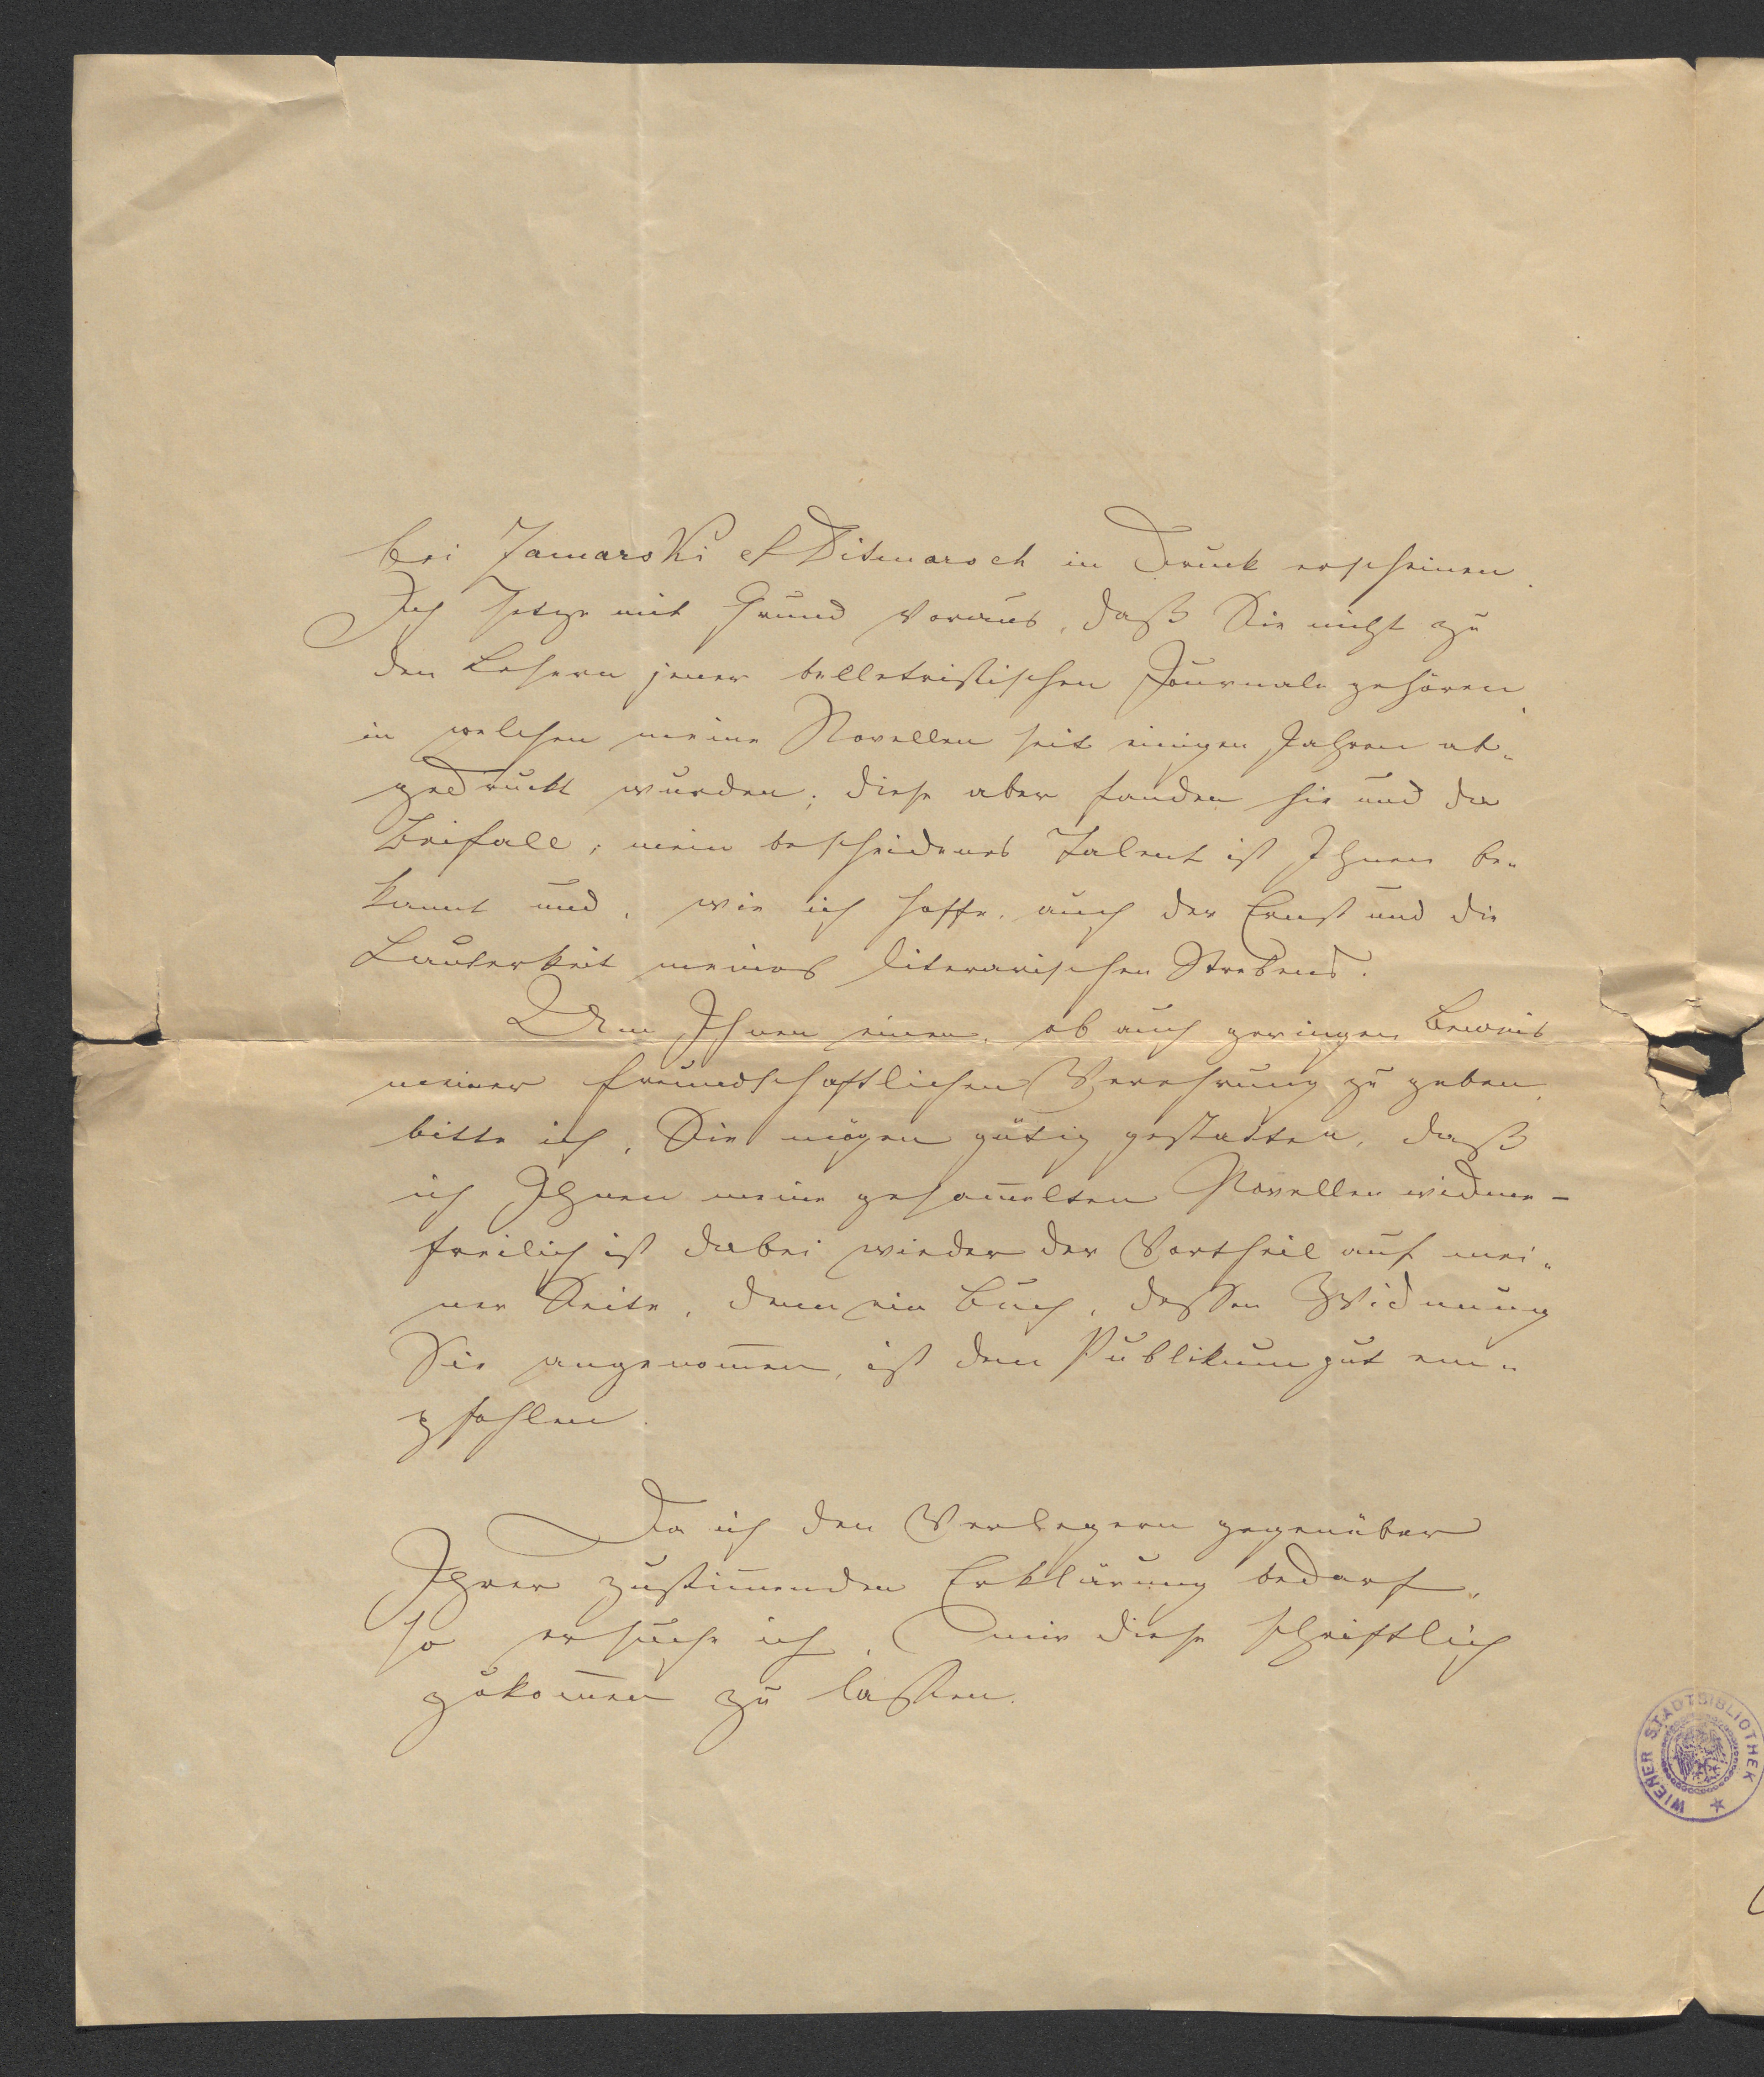 bei Jamarski & Ditmarsch in Druck erscheinen.
Ich setze mit Grund voraus, daß Sie nicht zu
den Lesern jener belletristischen Journale gehören,
in welchen meine Novellen seit einigen Jahren ab„
gedruckt wurden; diese aber fanden hie und da
Beifall; mein bescheidenes Talent ist Ihnen be„
kannt und, wie ich hoffe, auch der Ernst und die
Lauterkeit meines literarischen Strebens.
Um Ihnen einen, ob auch geringen Beweis
meiner freundschaftlichen Verehrung zu geben,
bitte ich, Sie mögen gütig gestatten, daß
ich Ihnen meine gesam̄elten Novellen widme –
freilich ist dabei wieder der Vortheil auf mei„
ner Seite, denn ein Buch, dessen Widmung
Sie angenom̄en, ist dem Publikum gut em„
pfohlen.
Da ich den Verlegern gegenüber
Ihrer zustim̄enden Erklärung bedarf,
so ersuche ich, mir diese schriftlich
zukom̄en zu lassen.
WIENER STADTBIBLIOTHEK